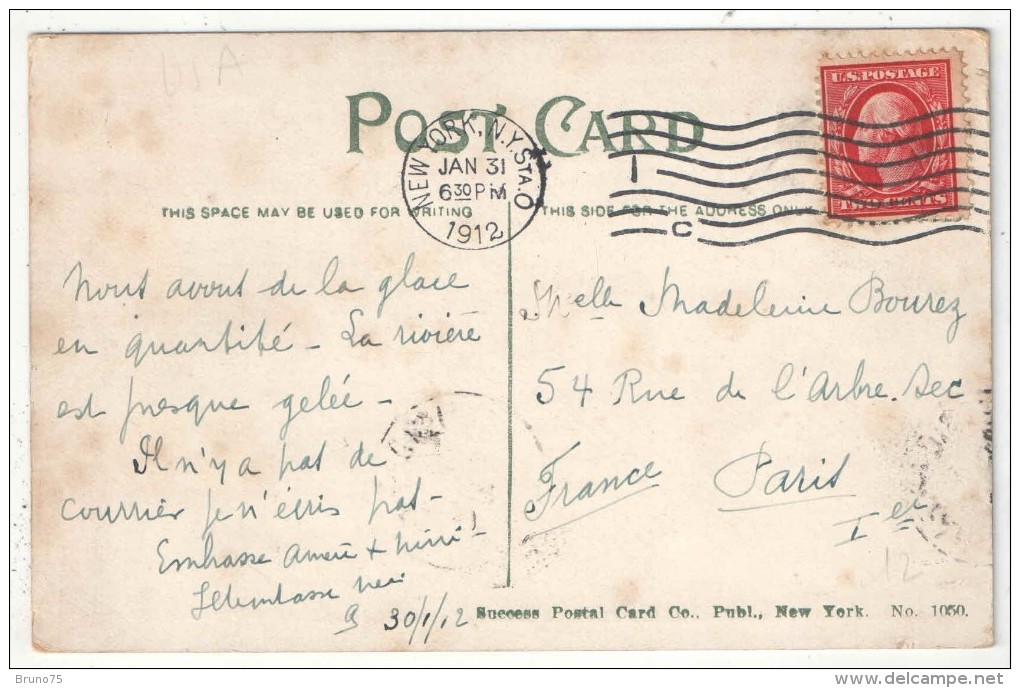 USA
POST CARD
U.S. POSTAGE
TWO CENTS
NEW YORK, N.Y. STA. O
JAN 31
6 30 PM
1912
1
C
THIS SPACE MAY BE USED FOR WRITING
THIS SIDE FOR THE ADDRESS ONLY
Nous avons de la glace
en quantité - La rivière
est presque gelée -
Il n'y a pas de
courrier je n'écris pas -
Embrasse
30/1/12
Melle Madeleine Bourez
54 Rue de l'Arbre. Sec
France Paris
Ier
12
Success Postal Card Co., Publ., New York. No. 1050.
Bruno75
delcampe.net